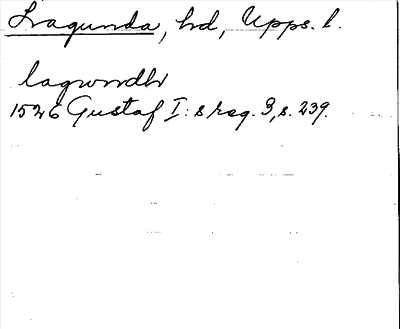 Lagunda, hd, Upps. l.
lagwndh
1526 Gustaf I: s reg. 3, s. 239.